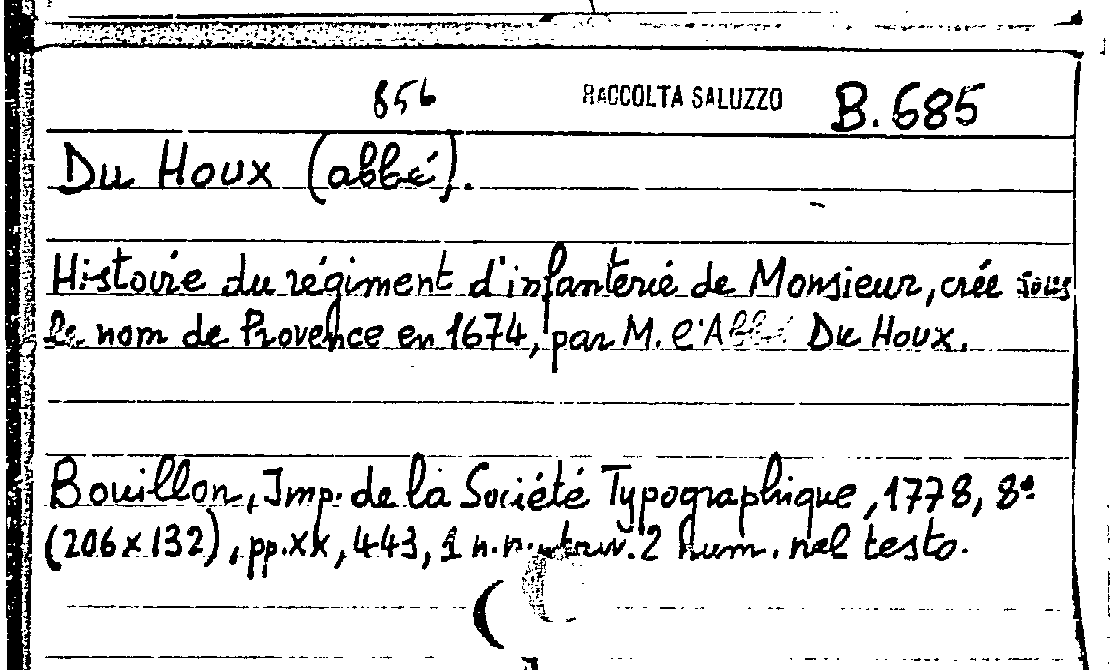 856 RACCOLTA SALUZZO B. 685
Du Houx (abbé).
Histoire du régiment d'infanterie de Monsieur, crée sous
le nom de Provence en 1674, par M. l'Abbé Du Houx.
Bouillon, Imp. de la Société Typographique, 1778, 8°
(206x132), pp. XX, 443, 1 n.n. 2 num. nel testo.